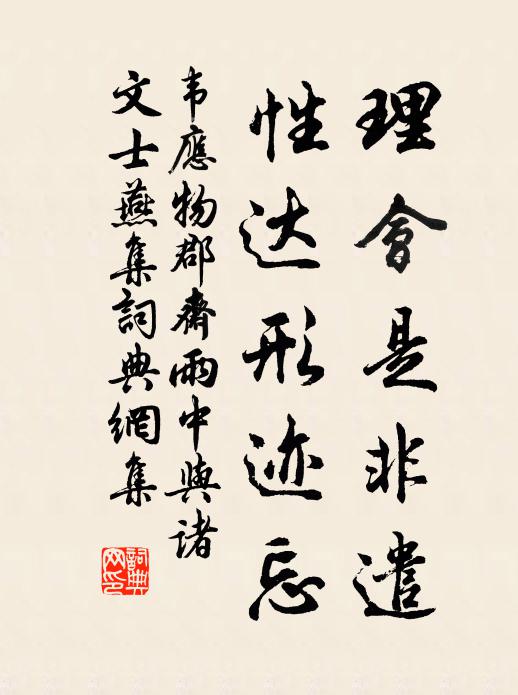 理會是非遣
性达形迹忘
韦應物郡齋雨中與諸
文士燕集詞典網集
詞典
网印